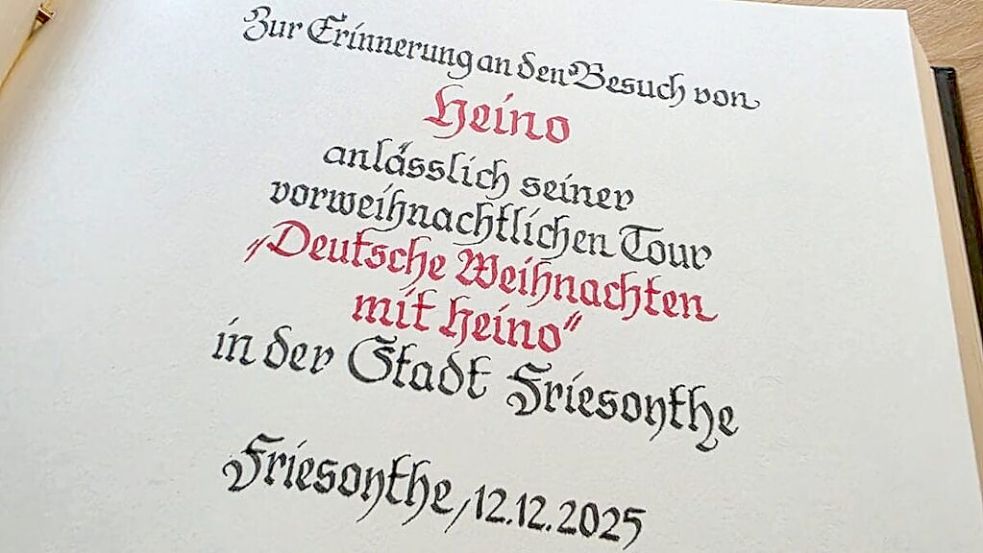 Zur Erinnerung an den Besuch von
Heino
anlässlich seiner
vorweihnachtlichen Tour
„Deutsche Weihnachten
mit Heino“
in der Stadt Friesoythe
Friesoythe, 12.12.2025